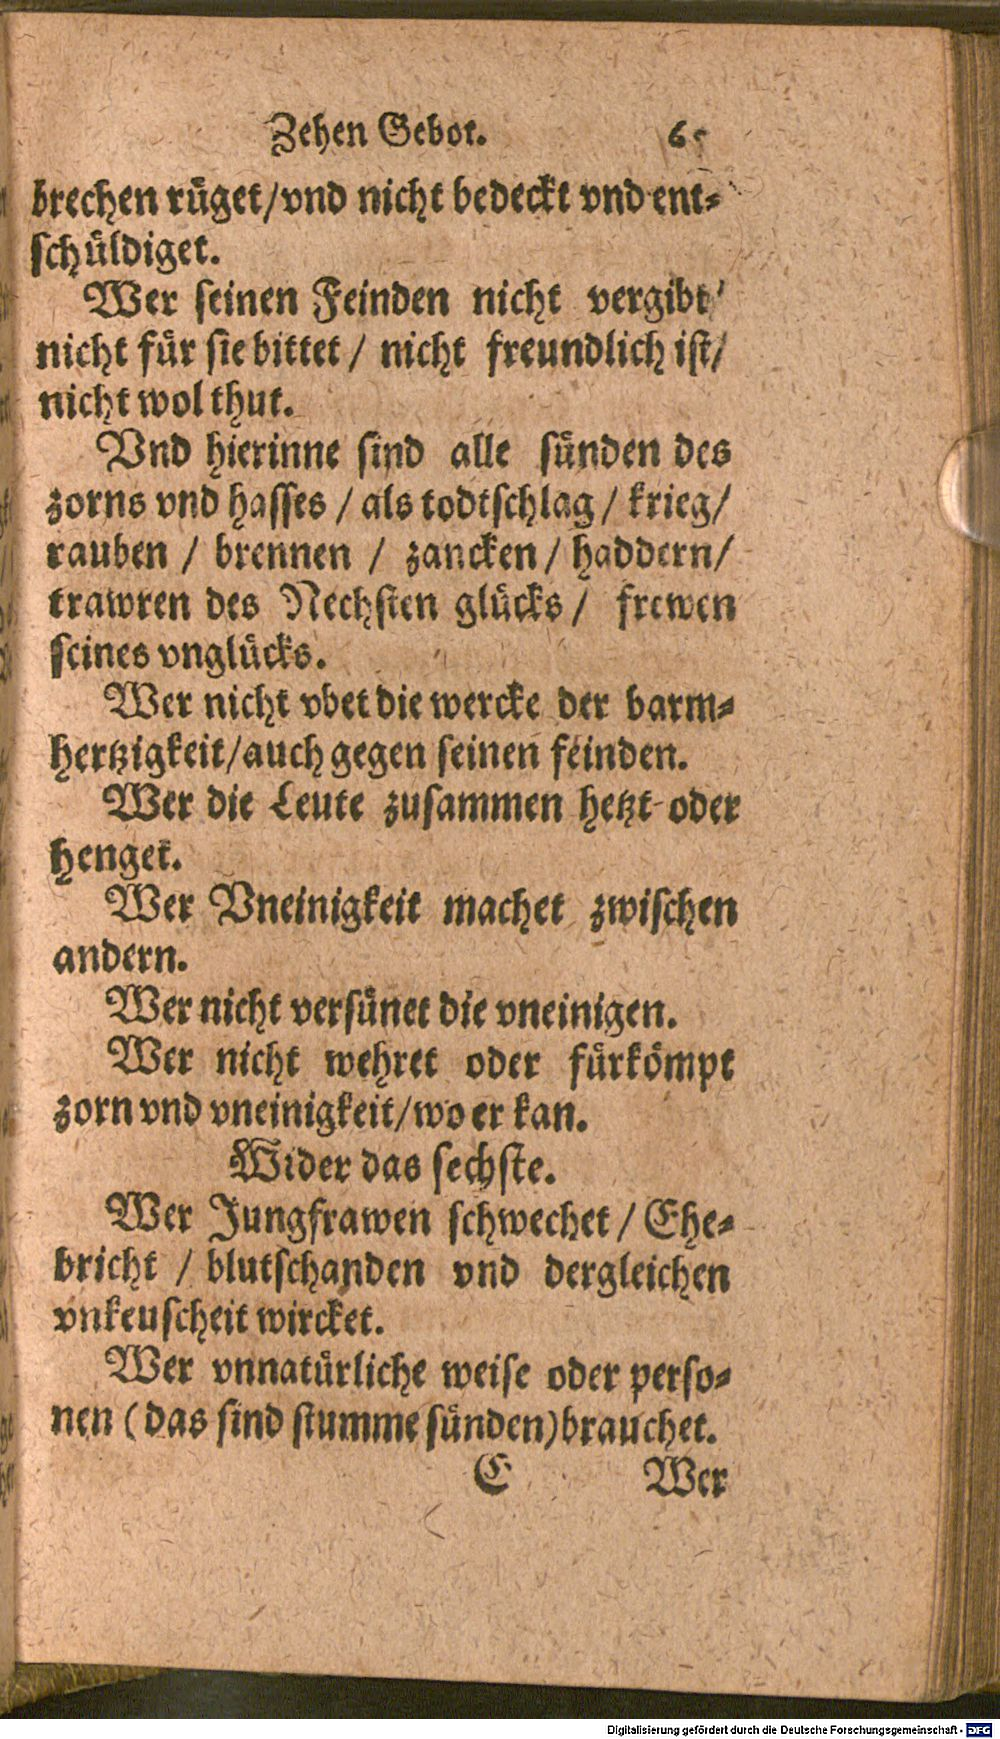 Zehen Gebot. 65
brechen rüget/vnd nicht bedeckt vnd ent-
schüldiget.
Wer seinen Feinden nicht vergibt/
nicht für sie bittet / nicht freundlich ist/
nicht wol thut.
Vnd hierinne sind alle sünden des
zorns vnd hasses / als todtschlag / krieg/
rauben / brennen / zancken / haddern/
trawren des Nechsten glücks / frewen
seines vnglücks.
Wer nicht vbet die wercke der barm-
hertzigkeit/auch gegen seinen feinden.
Wer die Leute zusammen hetzt oder
henget.
Wer Vneinigkeit machet zwischen
andern.
Wer nicht versünet die vneinigen.
Wer nicht wehret oder fürkömpt
zorn vnd vneinigkeit/wo er kan.
Wider das sechste.
Wer Jungfrawen schwechet / Ehe-
bricht / blutschanden vnd dergleichen
vnkeuscheit wircket.
Wer vnnatürliche weise oder perso-
nen (das sind stumme sünden)brauchet.
E Wer
Digitalisierung gefördert durch die Deutsche Forschungsgemeinschaft - DFG